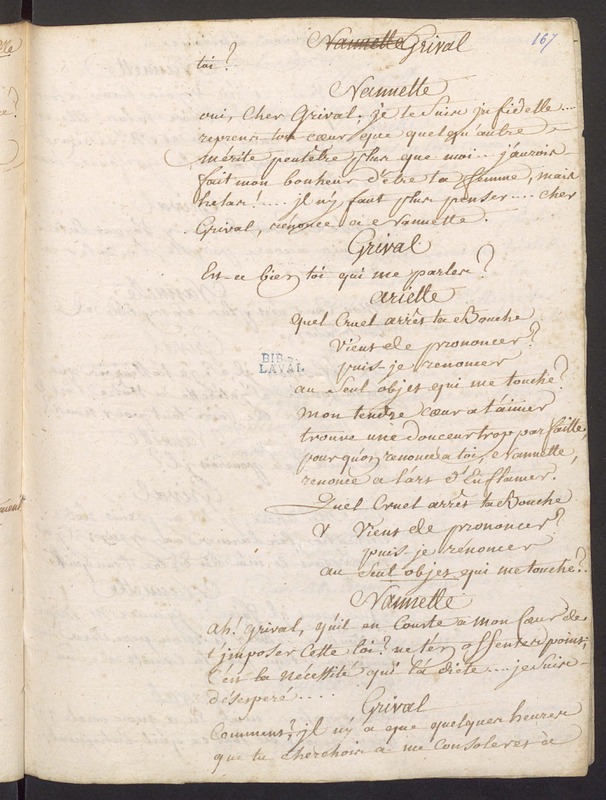 167
Nannette Grival
toi ?
Nannette
oui, cher Grival. je te suis jnfidelle....
reprens ton cœur que quelqu'autre
mérite peutêtre plus que moi... j'aurois
fait mon bonheur d'être ta femme, mais
helas !.... jl n'y faut plus penser.... cher
Grival, rénonce a Nannette.
Grival
Est-ce bien toi qui me parles ?
ariette
quel Cruel arrêt ta Bouche
Viens de prononcer ?
puis-je renoncer
au seul objet qui me touche ?
mon tendre cœur a t'aimer
trouve une douceur trop parfaitte,
pourquoi, renonce a toi, Nannette,
renonce a l'art d'Enflamer.
Quel Cruel arrêt ta Bouche
Viens de prononcer ?
puis-je rénoncer
au seul objet qui me touche ?
Nannette
ah ! grival, qu'il en Coute a mon Cœur de
t'jmposer cette loi ? ne t'en offenses point ;
C'en la nécessité qui l'a dicte.... je suis
désesperé....
Grival
Comment ? jl n'y a que quelques heures
que tu cherchois a me consoler et a
BIB.
LAVAL